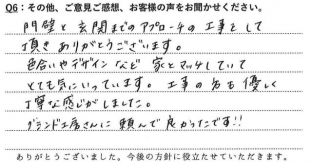 Q6：その他、ご意見ご感想、お客様の声をお聞かせください。
門壁と玄関までのアプローチの工事をして
頂きありがとうございます。
色合いやデザインなど家とマッチしていて
とても気にいっています。工事の方も優しく
丁寧な感じがしました。
グランド工房さんに頼んで良かったです!!
ありがとうございました。今後の方針に役立たせていただきます。